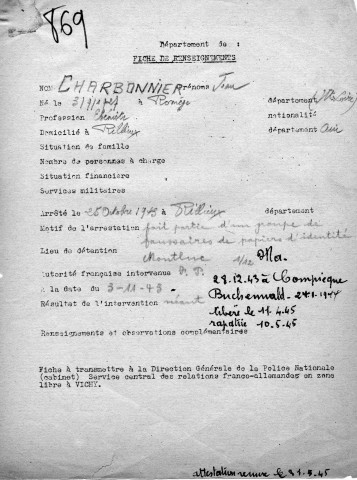 869
Département de :
FICHE DE RENSEIGNEMENTS
NOM CHARBONNIER Prénoms Jean
Né le à département
Profession Ebéniste nationalité
Domicilié à Rillieux département Ain
Situation de famille
Nombre de personnes à charge
Situation financière
Services militaires
Arrêté le 25 Octobre 1943 à Rillieux département
Motif de l'arrestation fait partie d'un groupe de
faussaires de papiers d'identité
Lieu de détention Montluc
Autorité française intervenue
28.12.43 à Compiègne
à la date du 3-11-43 -
Buchenwald -
Résultat de l'intervention néant
libéré le 11.4.45
rapatrié 10.5.45
Renseignements et observations complémentaires
Fiche à transmettre à la Direction Générale de la Police Nationale
(cabinet) Service central des relations franco-allemandes en zone
libre à VICHY.
attestation remise le